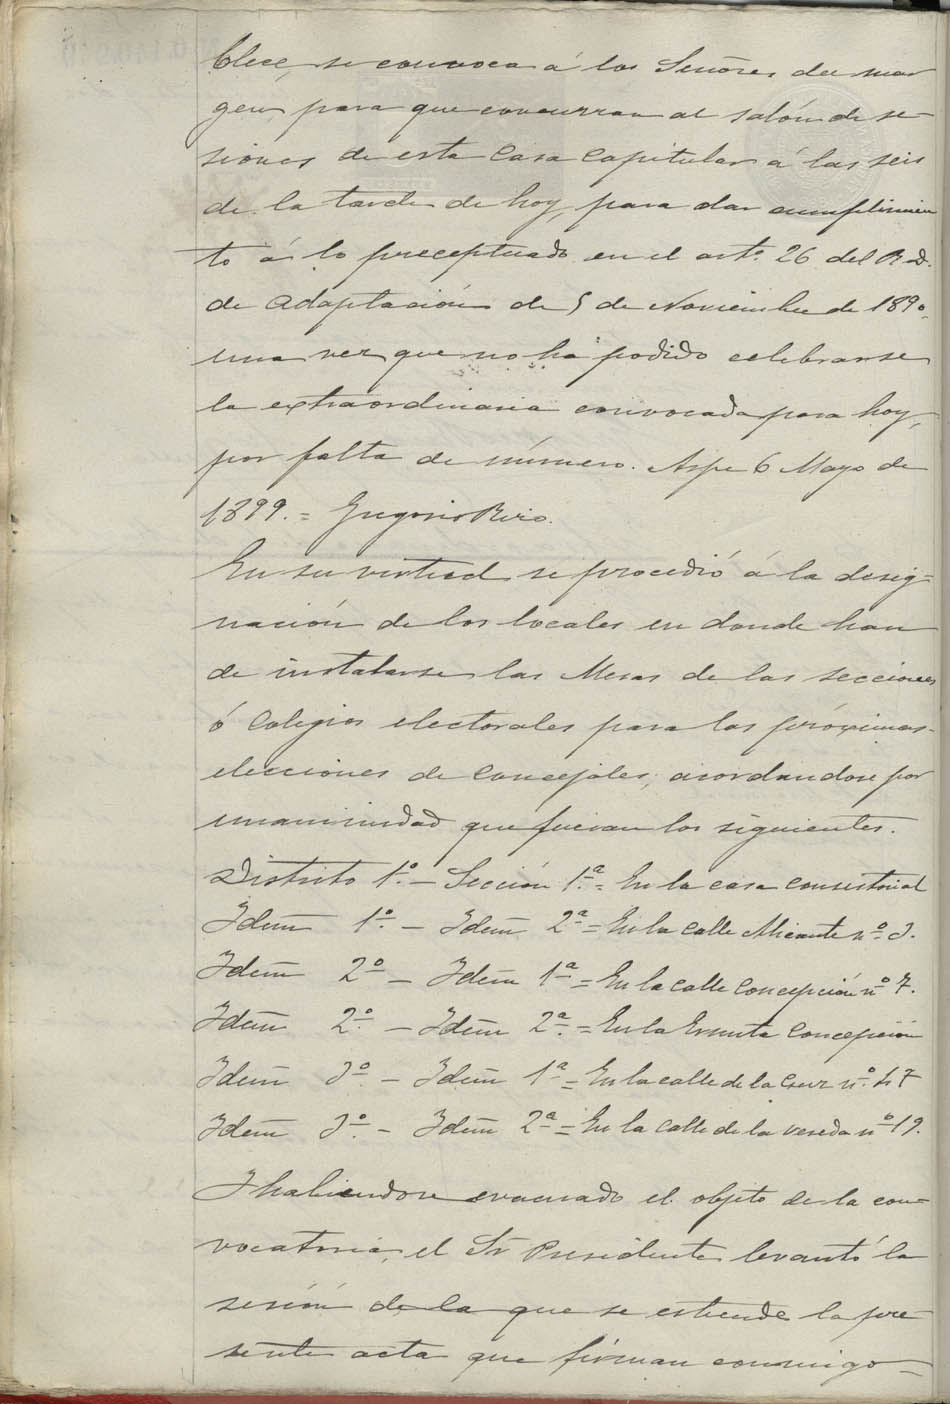 blece, se convoca á los Señores del mar
gen, para que concurran al salón de se-
siones de esta Casa Capitular á las seis
de la tarde de hoy, para dar cumplimien
to á lo preceptuado en el artº. 26 del R. D.
de Adaptación de 5 de Noviembre de 1890,
una vez que no ha podido celebrarse
la extraordinaria convocada para hoy,
por falta de número. Aspe 6 Mayo de
1899. = Gregorio Rizo.
En su virtud se procedió á la desig=
nación de los locales en donde han
de instalarse las Mesas de las secciones
ó Colegios electorales para las próximas
elecciones de Concejales, acordandose por
unanimidad que fueran los siguientes.
Distrito 1º. — Sección 1ª. = En la casa consistorial
Idem 1º. — Idem 2ª. = En la calle Alicante nº. 3.
Idem 2º. — Idem 1ª. = En la calle Concepción nº 7.
Idem 2º. — Idem 2ª. = En la Ermita Concepción
Idem 3º. — Idem 1ª. = En la calle de la Cruz nº. 47
Idem 3º. — Idem 2ª. = En la calle de la vereda nº 19.
Y habiendose evacuado el objeto de la con=
vocatoria, el Sr. Presidente levantó la
sesión de la que se estiende la pre
sente acta que firman conmigo